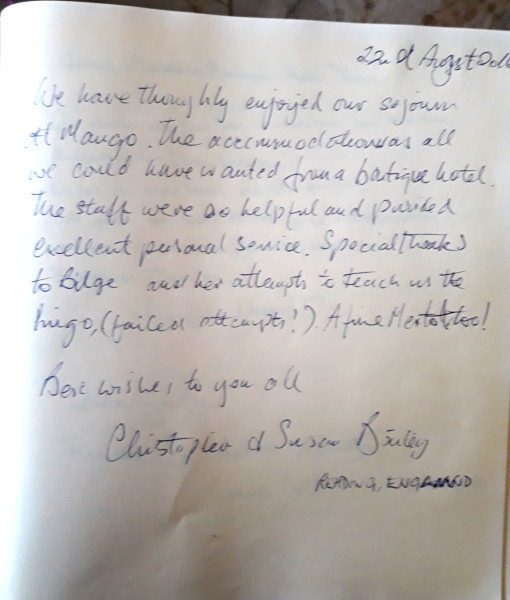 22nd August
We have thoroughly enjoyed our sojourn
at Mango. The accommodation was all
we could have wanted from a boutique hotel.
The staff were so helpful and provided
excellent personal service. Special thanks
to Bilge and her attempts to teach us the
lingo, (failed attempts!). A fine
Best wishes to you all
Christopher & Susan
READING, ENGLAND